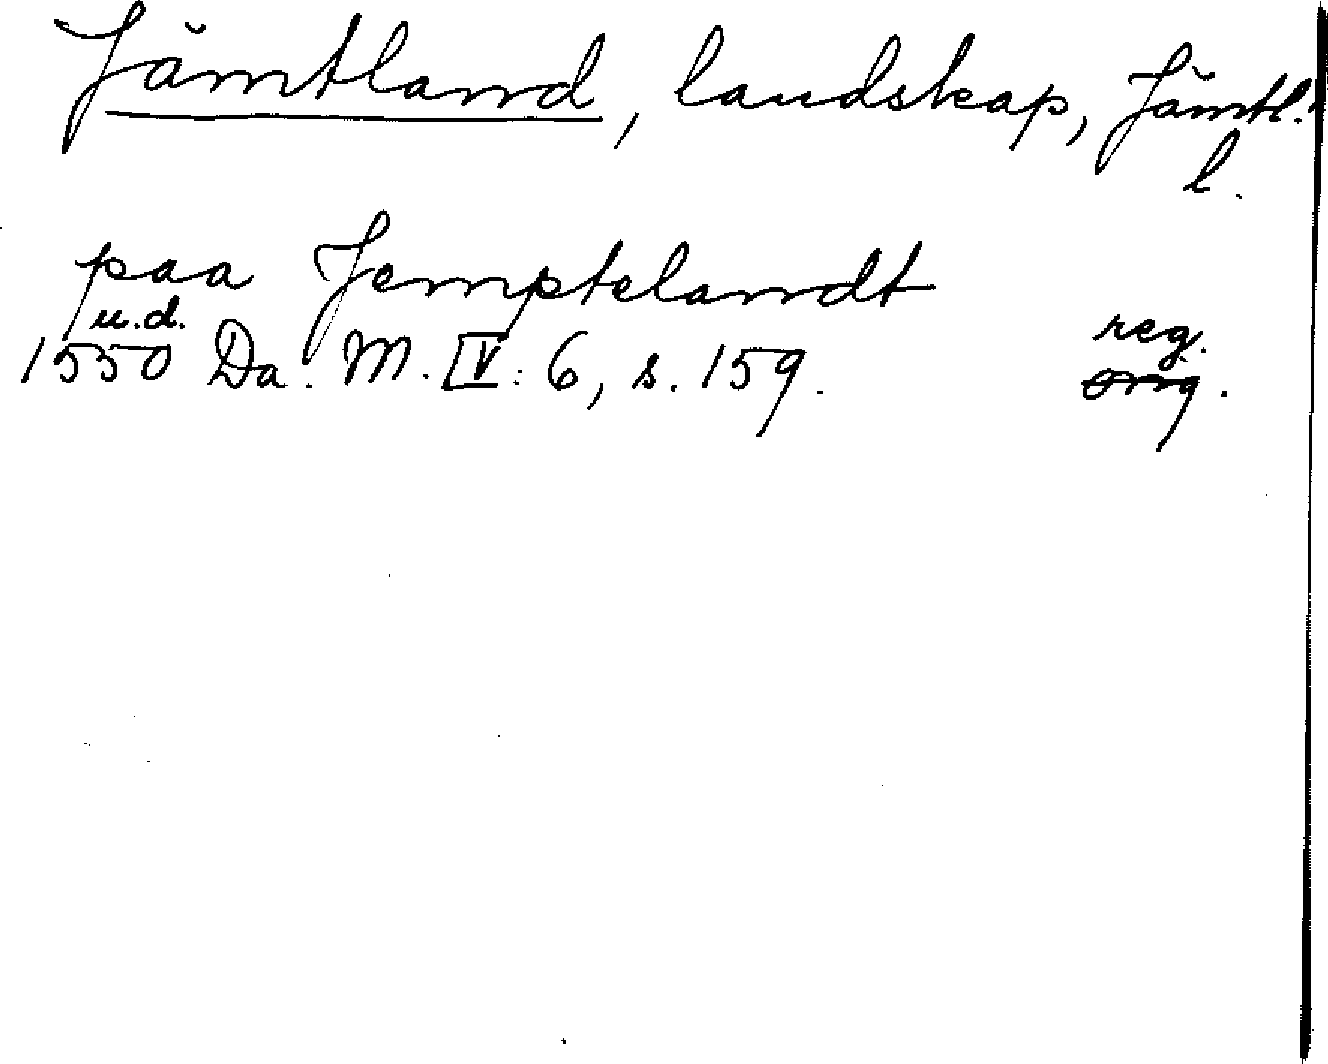 Jämtland, landskap, Jämtl.
l.
paa Jemptelandt
u.d. reg.
1550 Da. M. IV: 6, s. 159. orig.